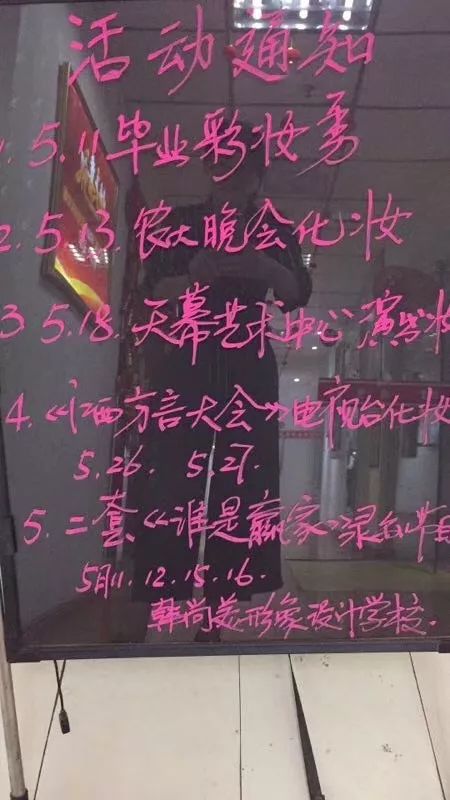 活动通知
1.5.11.毕业彩妆秀
2.5.13.农大晚会化妆
3 5.18.天幕艺术中心演出妆
4.《江西方言大会》电视台化妆
5.26. 5.27.
5.二套《谁是赢家》录制节目
5月11.12.15.16.
韩尚美形象设计学校.